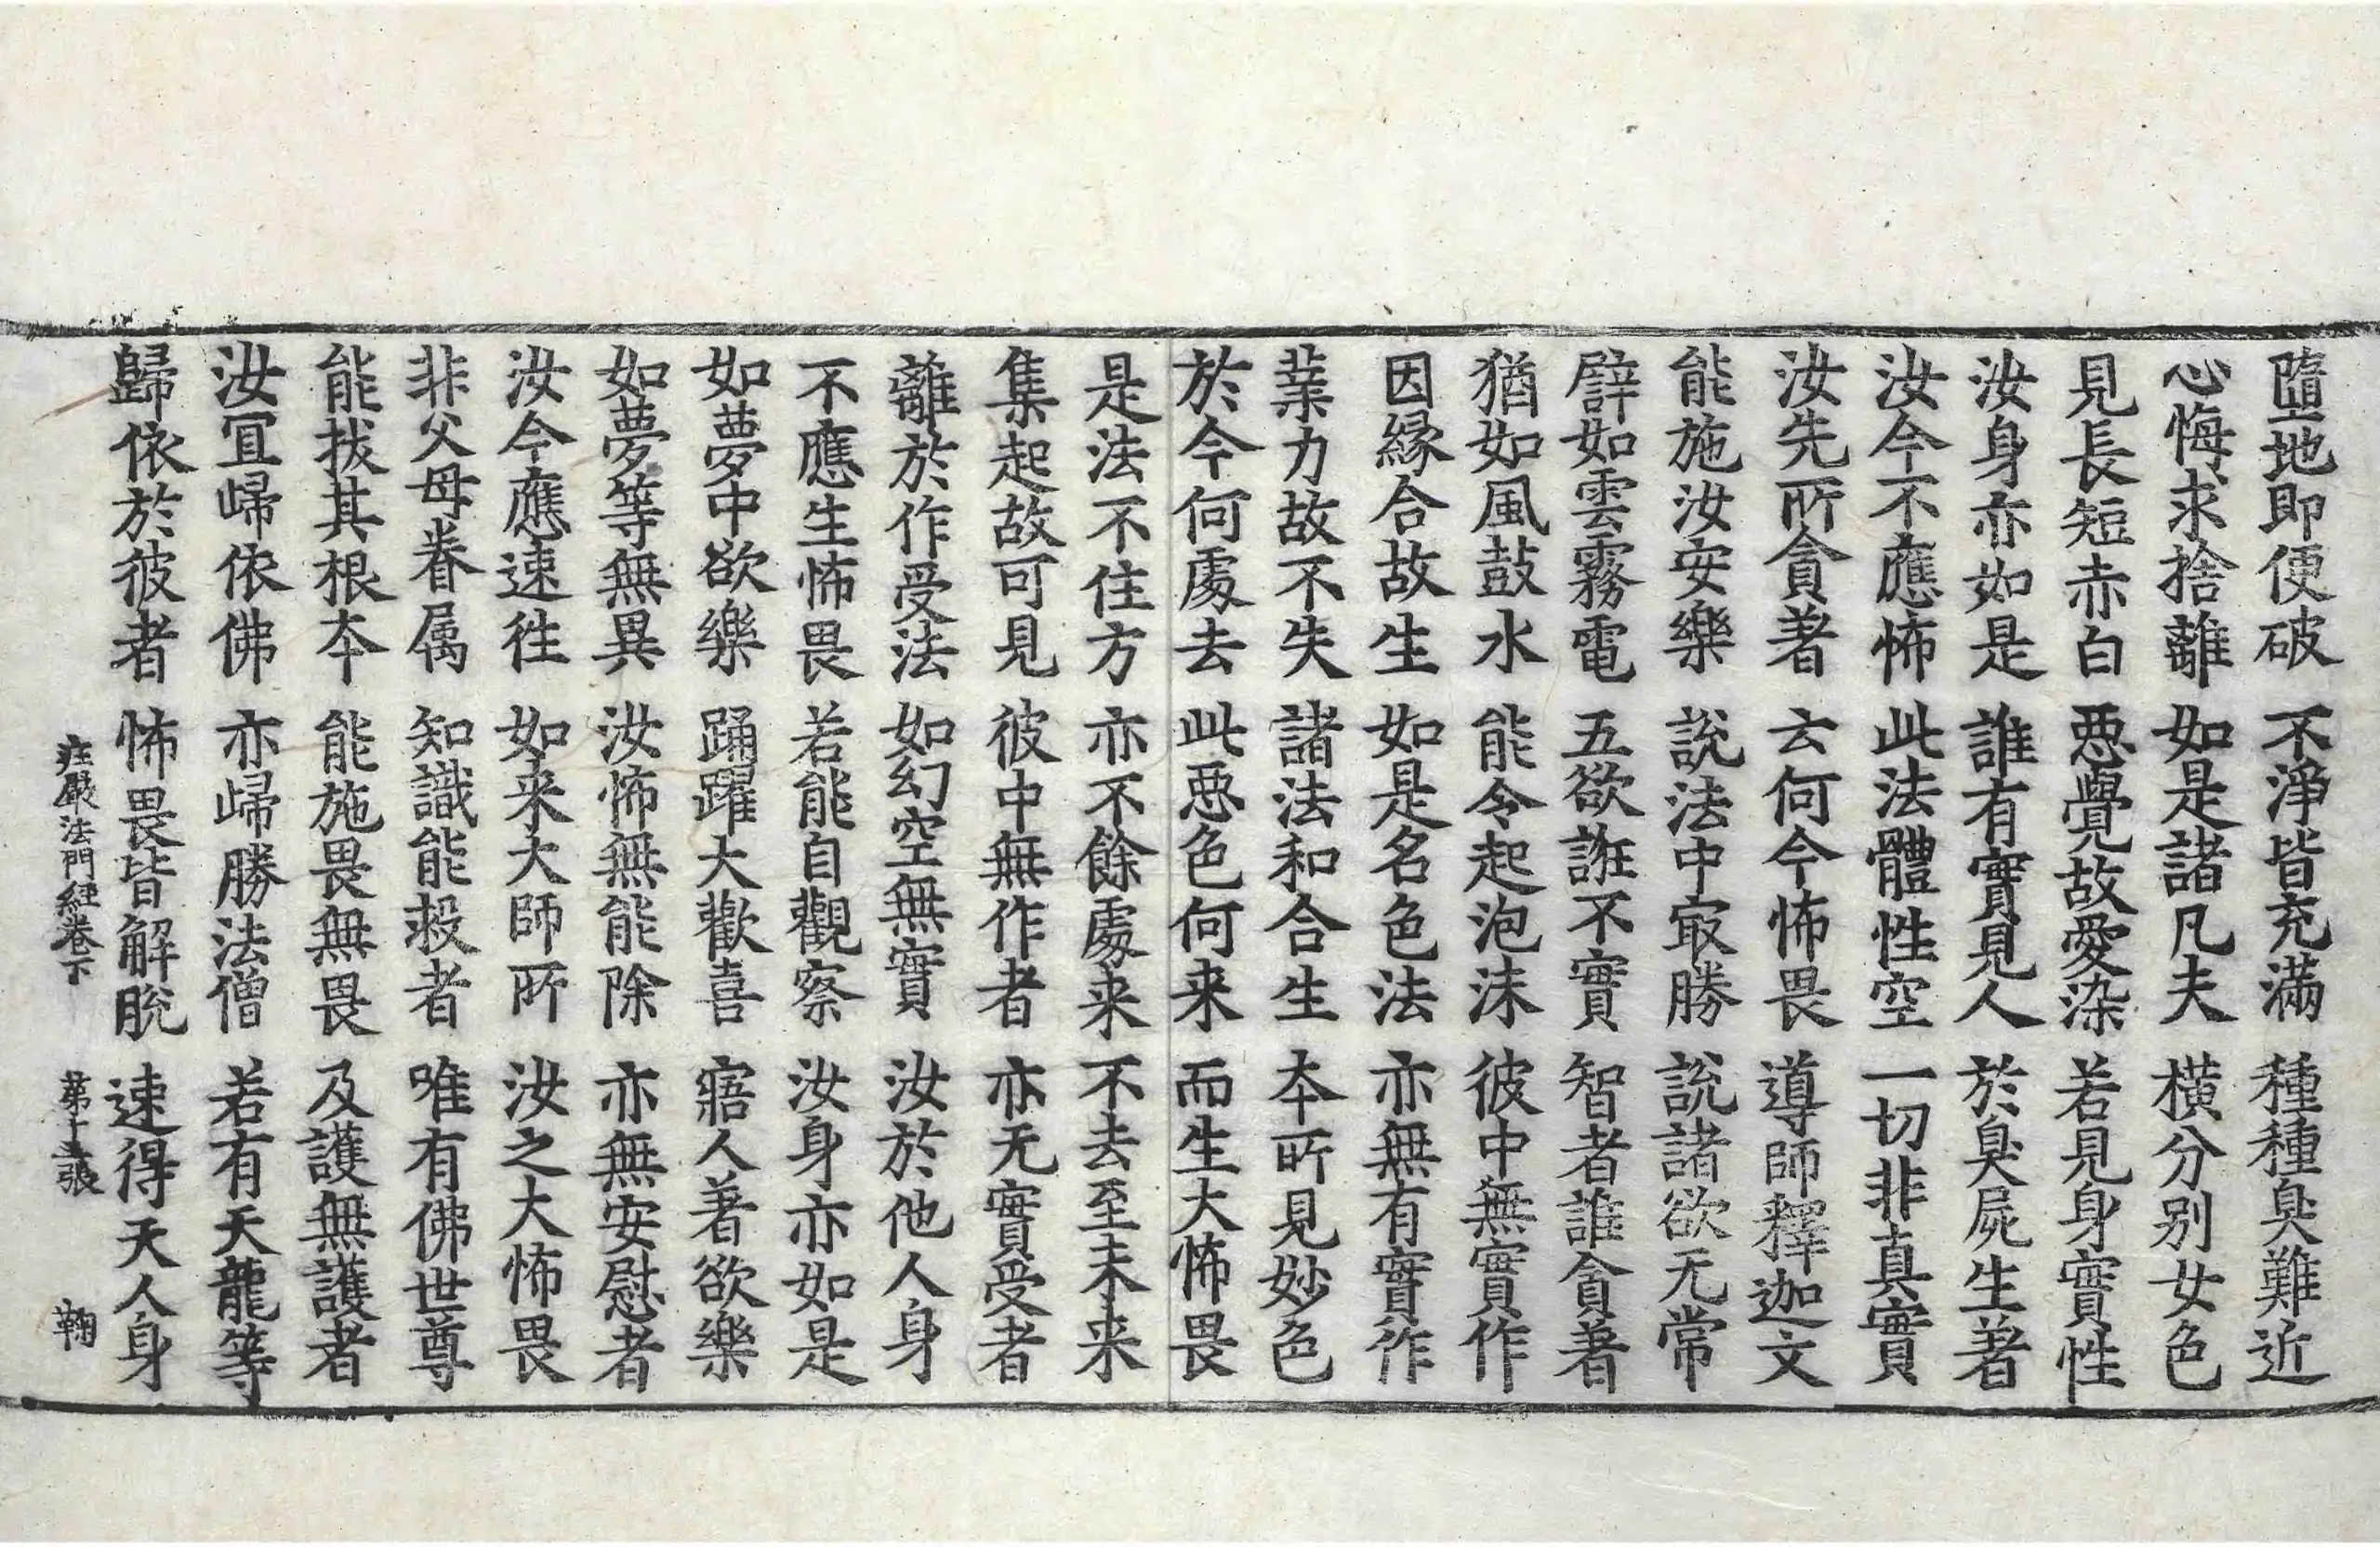 墮地即便破 不淨皆充滿 種種臭難近
心悔求捨離 如是諸凡夫 橫分别女色
見長短赤白 惡覺故愛染 若見身實性
汝身亦如是 誰有實見人 於臭屍生著
汝今不應怖 此法體性空 一切非真實
汝先所貪著 云何今怖畏 導師釋迦文
能施汝安樂 說法中㝡勝 說諸欲无常
譬如雲霧電 五欲誑不實 智者誰貪著
猶如風鼓水 能令起泡沫 彼中無實作
因緣合故生 如是名色法 亦無有實作
業力故不失 諸法和合生 本所見妙色
於今何處去 此惡色何来 而生大怖畏
是法不住方 亦不餘處来 不去至未来
集起故可見 彼中無作者 亦无實受者
離於作受法 如幻空無實 汝於他人身
不應生怖畏 若能自觀察 汝身亦如是
如夢中欲樂 踊躍大歡喜 寤人著欲樂
如夢等無異 汝怖無能除 亦無安慰者
汝今應速往 如来大師所 汝之大怖畏
非父母眷属 知識能救者 唯有佛世尊
能拔其根本 能施畏無畏 及護無護者
汝冝歸依佛 亦歸勝法僧 若有天龍等
歸依於彼者 怖畏皆解脫 速得天人身
庄嚴法門經卷下 第十五張 鞠